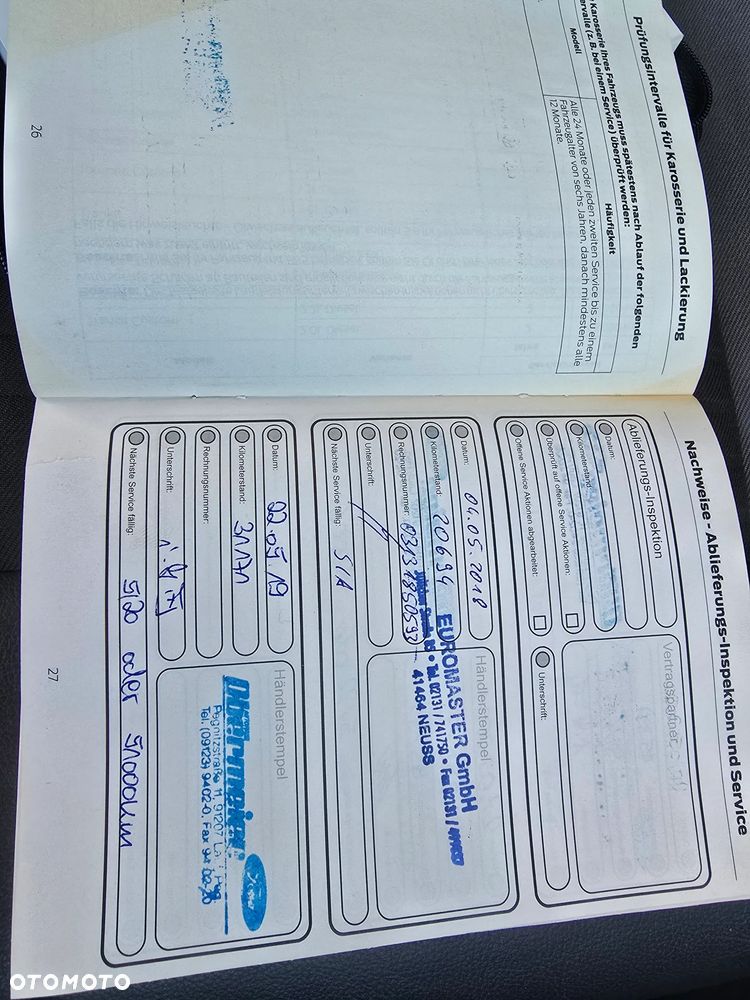 Prüfungsintervalle für Karosserie und Lackierung
Karosserie Ihres Fahrzeugs muss spätestens nach Ablauf der folgenden
(z. B. bei einem Service) überprüft werden:
Modell
Häufigkeit
Alle 24 Monate oder jeden zweiten Service bis zu einem
Fahrzeugalter von sechs Jahren, danach mindestens alle
12 Monate.
26
Nachweise - Ablieferungs-Inspektion und Service
Ablieferungs-Inspektion
Datum:
Kilometerstand:
Überprüft auf offene Service Aktionen:
Offene Service Aktionen abgearbeitet:
Vertragspartner
Unterschrift:
Datum: 04.05.2018
Kilometerstand: 20694
Rechnungsnummer: 0313
Unterschrift:
Nächste Service fällig: S/A
Händlerstempel
EUROMASTER GmbH
Tel. 02131 / 741750 • Fax 02131 /
41464 NEUSS
Datum: 02.05.19
Kilometerstand: 31171
Rechnungsnummer:
Unterschrift:
Nächste Service fällig: 5/20 oder 51000km
Händlerstempel
Obermeier
Ford
Pegnitzstraße 11, 91207
Tel. (09123) 9402-0, Fax 94 02-90
27
OTOMOTO